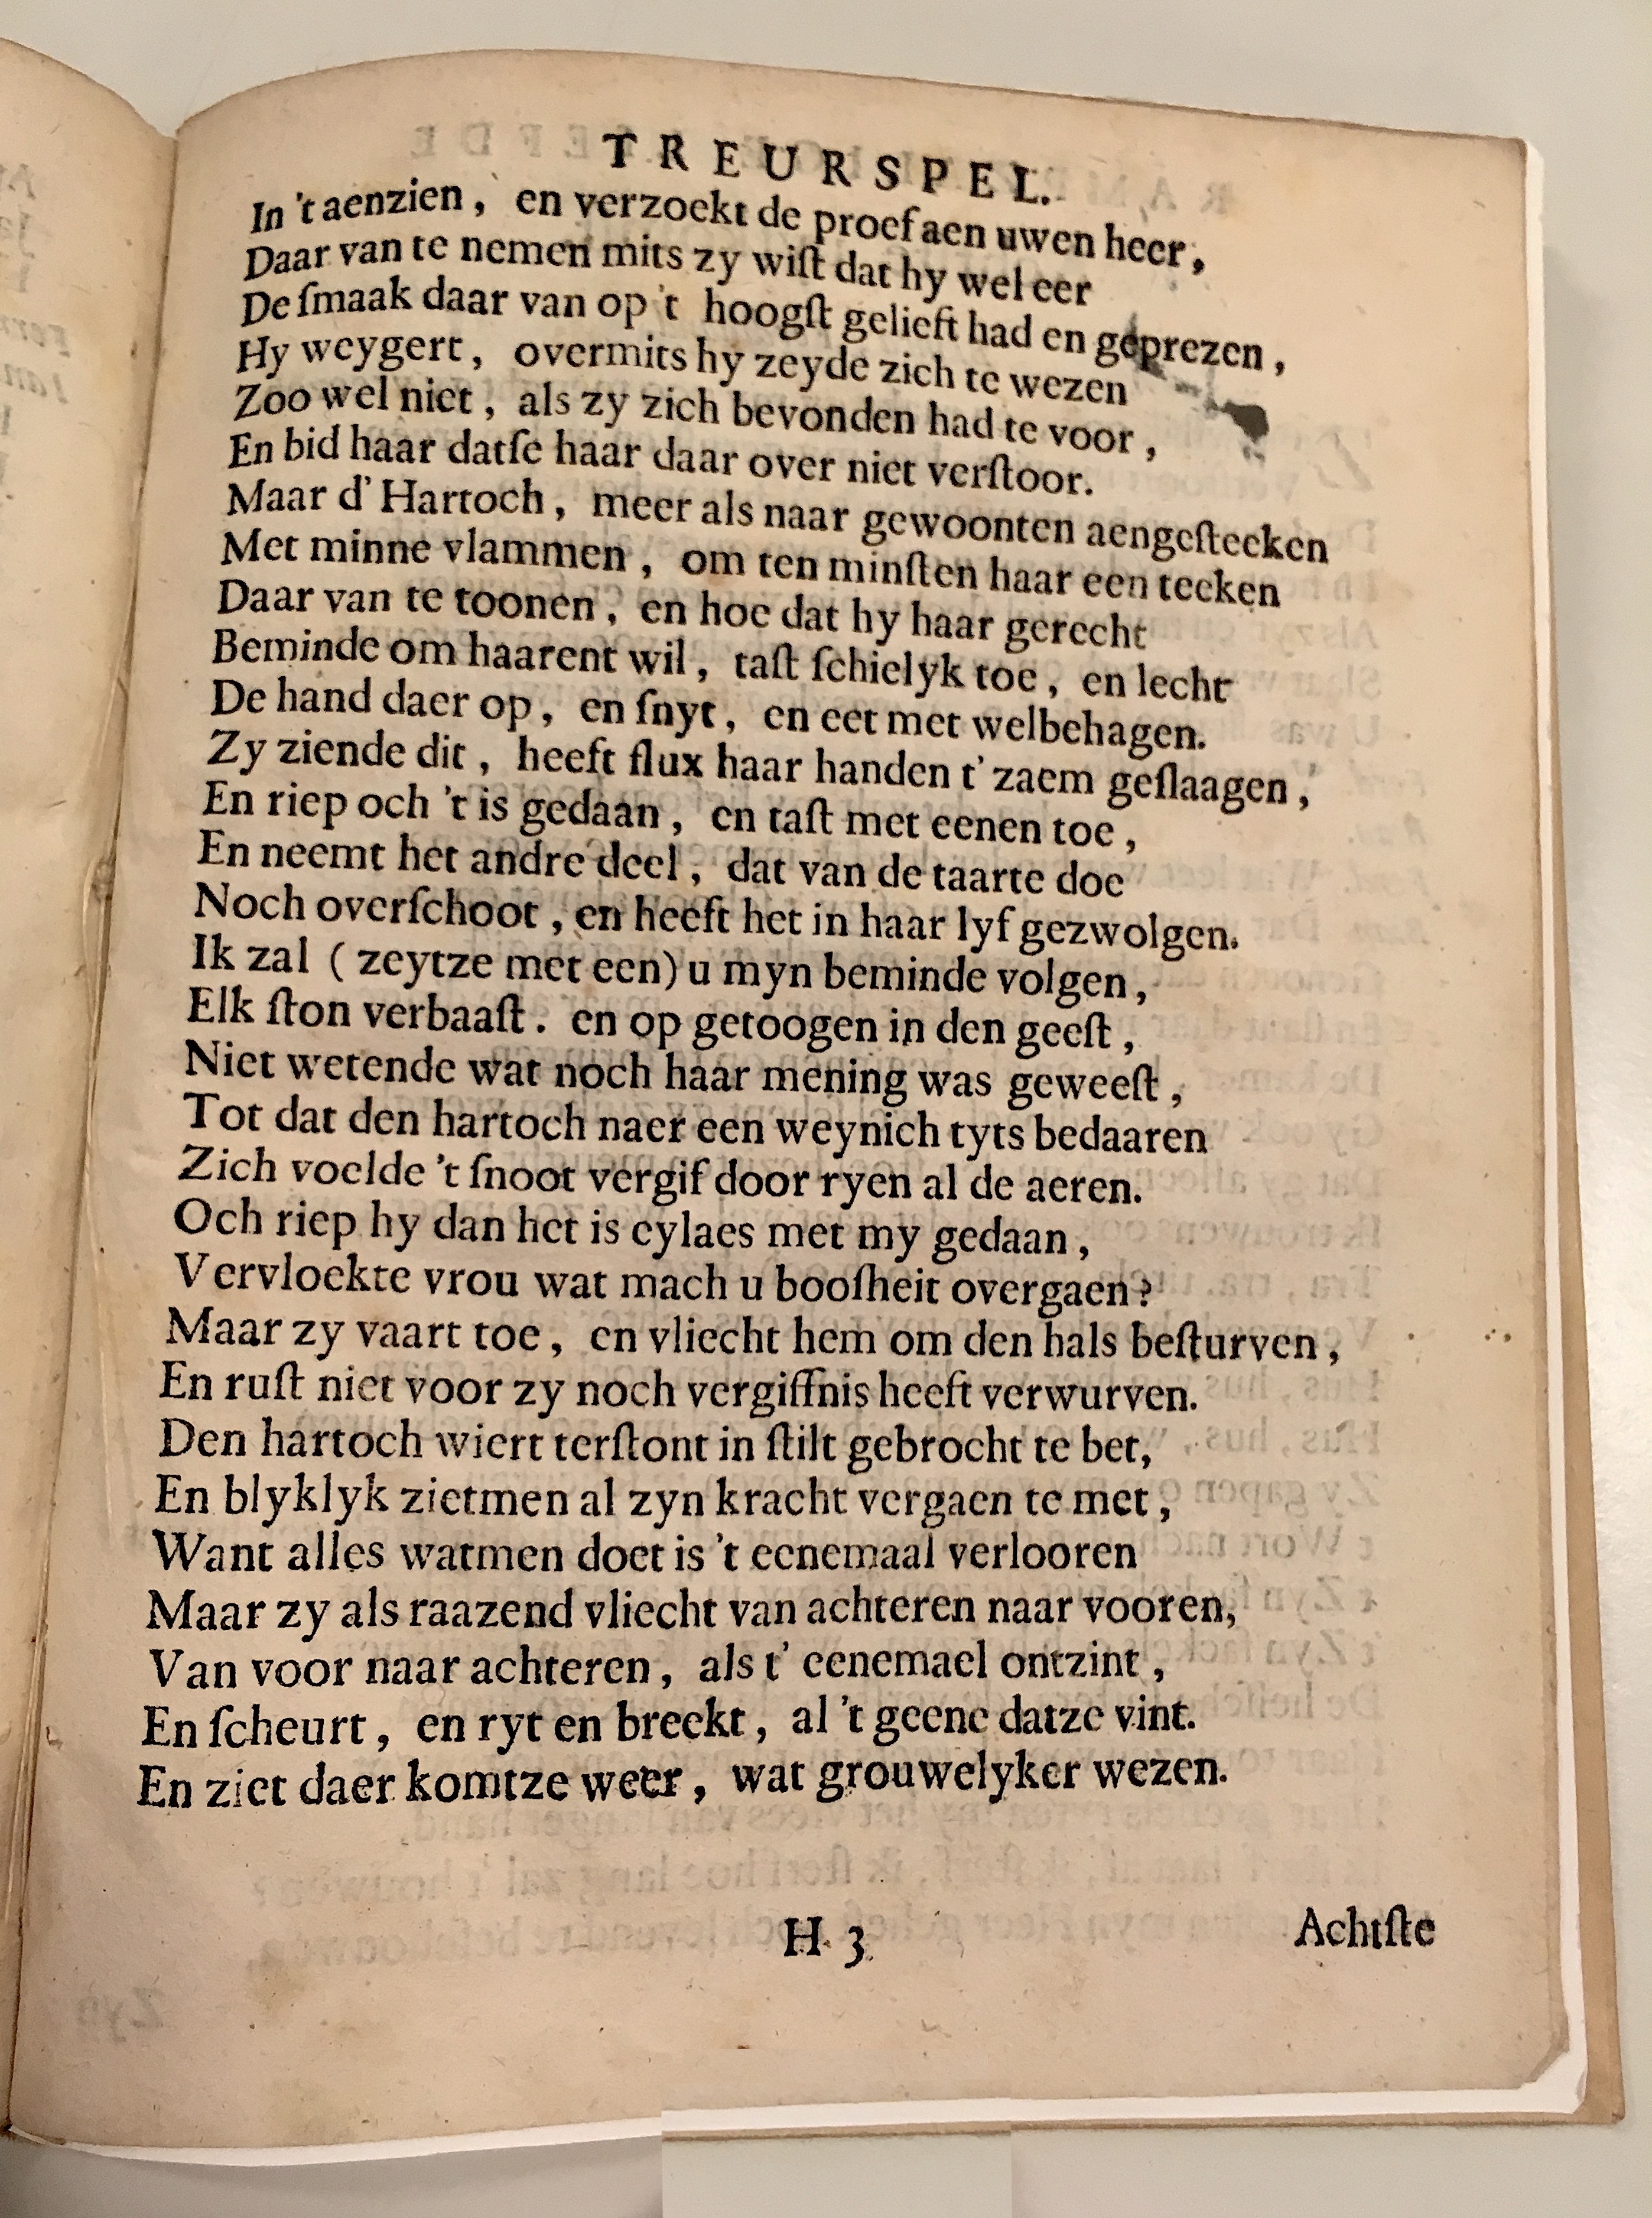 TREURSPEL.
In 't aenzien, en verzoekt de proef aen uwen heer,
Daar van te nemen mits zy wiſt dat hy wel eer
De ſmaak daar van op 't hoogſt gelieft had en geprezen,
Hy weygert, overmits hy zeyde zich te wezen
Zoo wel niet, als zy zich bevonden had te voor,
En bid haar datſe haar daar over niet verſtoor.
Maar d' Hartoch, meer als naar gewoonten aengeſteeken
Met minne vlammen, om ten minſten haar een teeken
Daar van te toonen, en hoe dat hy haar gerecht
Beminde om haarent wil, taſt ſchielyk toe, en lecht
De hand daer op, en ſnyt, en eet met welbehagen.
Zy ziende dit, heeft flux haar handen t' zaem geſlaagen,
En riep och 't is gedaan, en taſt met eenen toe,
En neemt het andre deel, dat van de taarte doe
Noch overſchoot, en heeft het in haar lyf gezwolgen.
Ik zal (zeytze met een) u myn beminde volgen,
Elk ſton verbaaſt. en op getoogen in den geeſt,
Niet wetende wat noch haar mening was geweeſt,
Tot dat den hartoch naer een weynich tyts bedaaren
Zich voelde 't ſnoot vergif door ryen al de aeren.
Och riep hy dan het is eylaes met my gedaan,
Vervloekte vrou wat mach u boosheit overgaen?
Maar zy vaart toe, en vliecht hem om den hals beſturven,
En ruſt niet voor zy noch vergiffnis heeft verwurven.
Den hartoch wiert terſtont in ſtilt gebrocht te bet,
En blyklyk zietmen al zyn kracht vergaen te met,
Want alles watmen doet is 't eenemaal verlooren
Maar zy als raazend vliecht van achteren naar vooren,
Van voor naar achteren, als t' eenemael ontzint,
En ſcheurt, en ryt en breekt, al 't geene datze vint.
En ziet daer komtze weer, wat grouwelyker wezen.
H 3
Achtſte